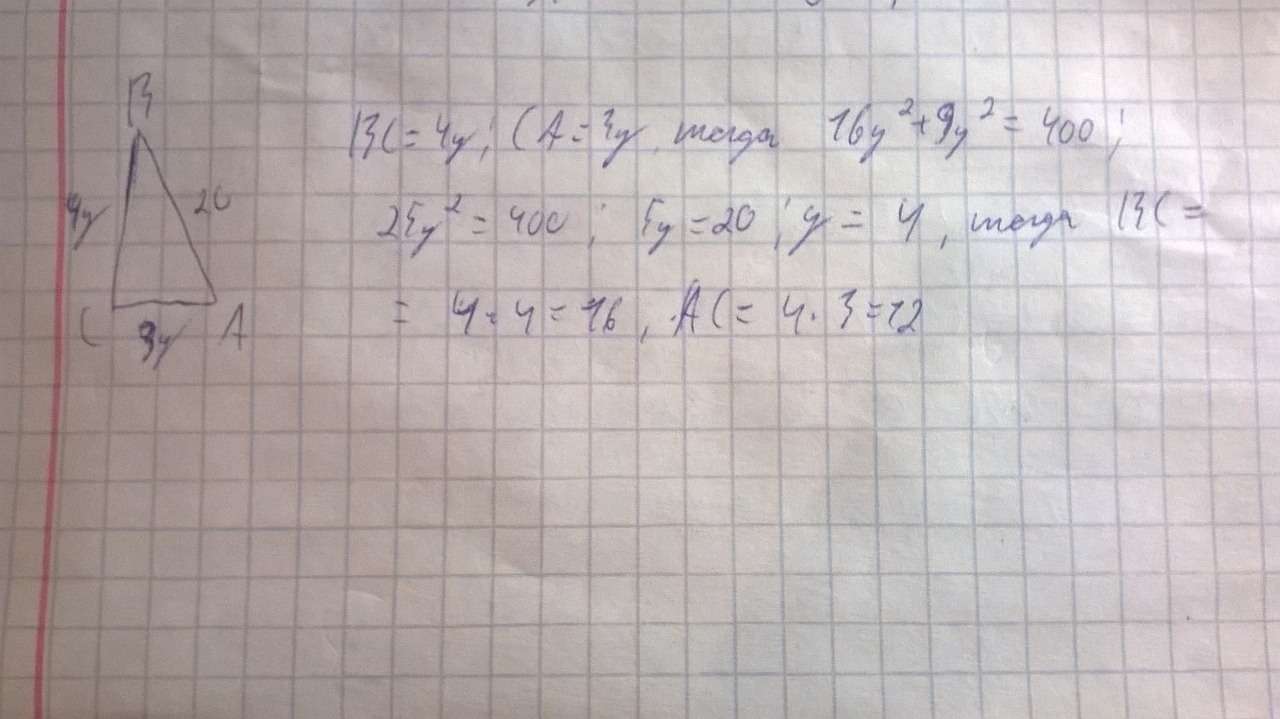 B
4y
20
C
3y
A
BC = 4y; CA = 3y, тогда 16y² + 9y² = 400;
25y² = 400; 5y = 20; y = 4, тогда BC =
= 4 · 4 = 16, AC = 4 · 3 = 12